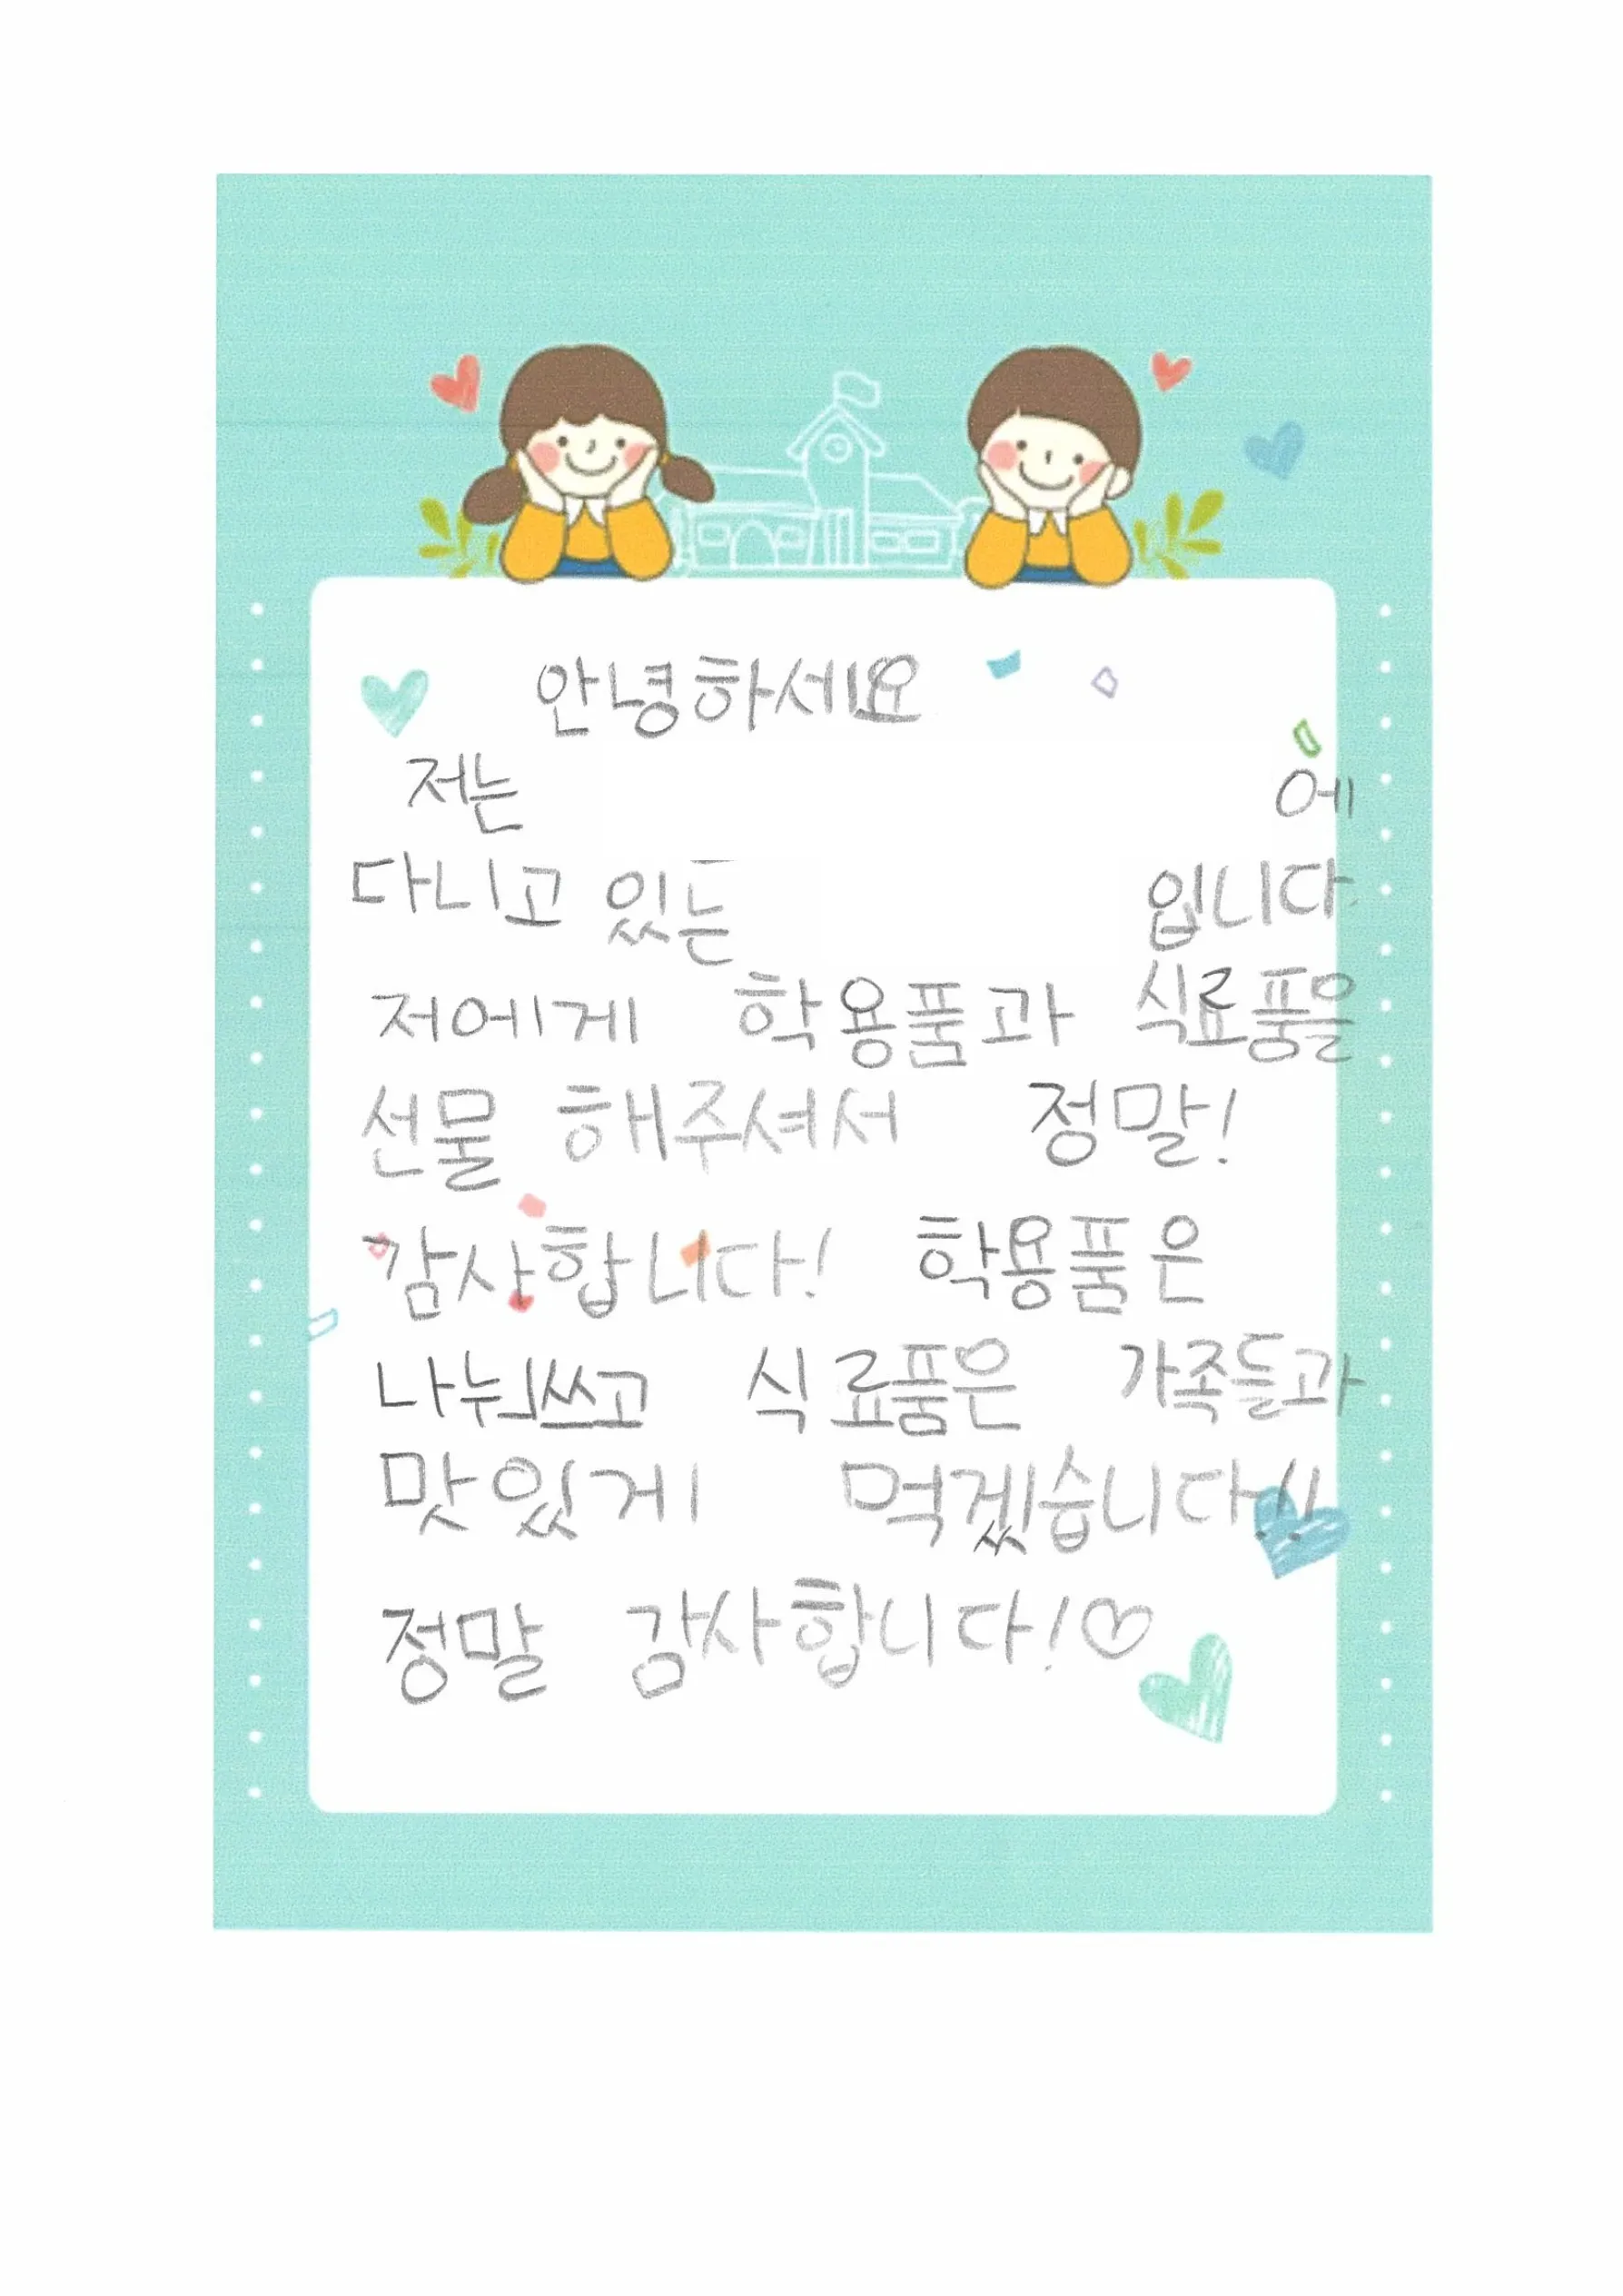 안녕하세요
저는 에
다니고 있는 입니다.
저에게 학용품과 식료품을
선물 해주셔서 정말!
감사합니다! 학용품은
나눠쓰고 식료품은 가족들과
맛있게 먹겠습니다!!
정말 감사합니다!♡